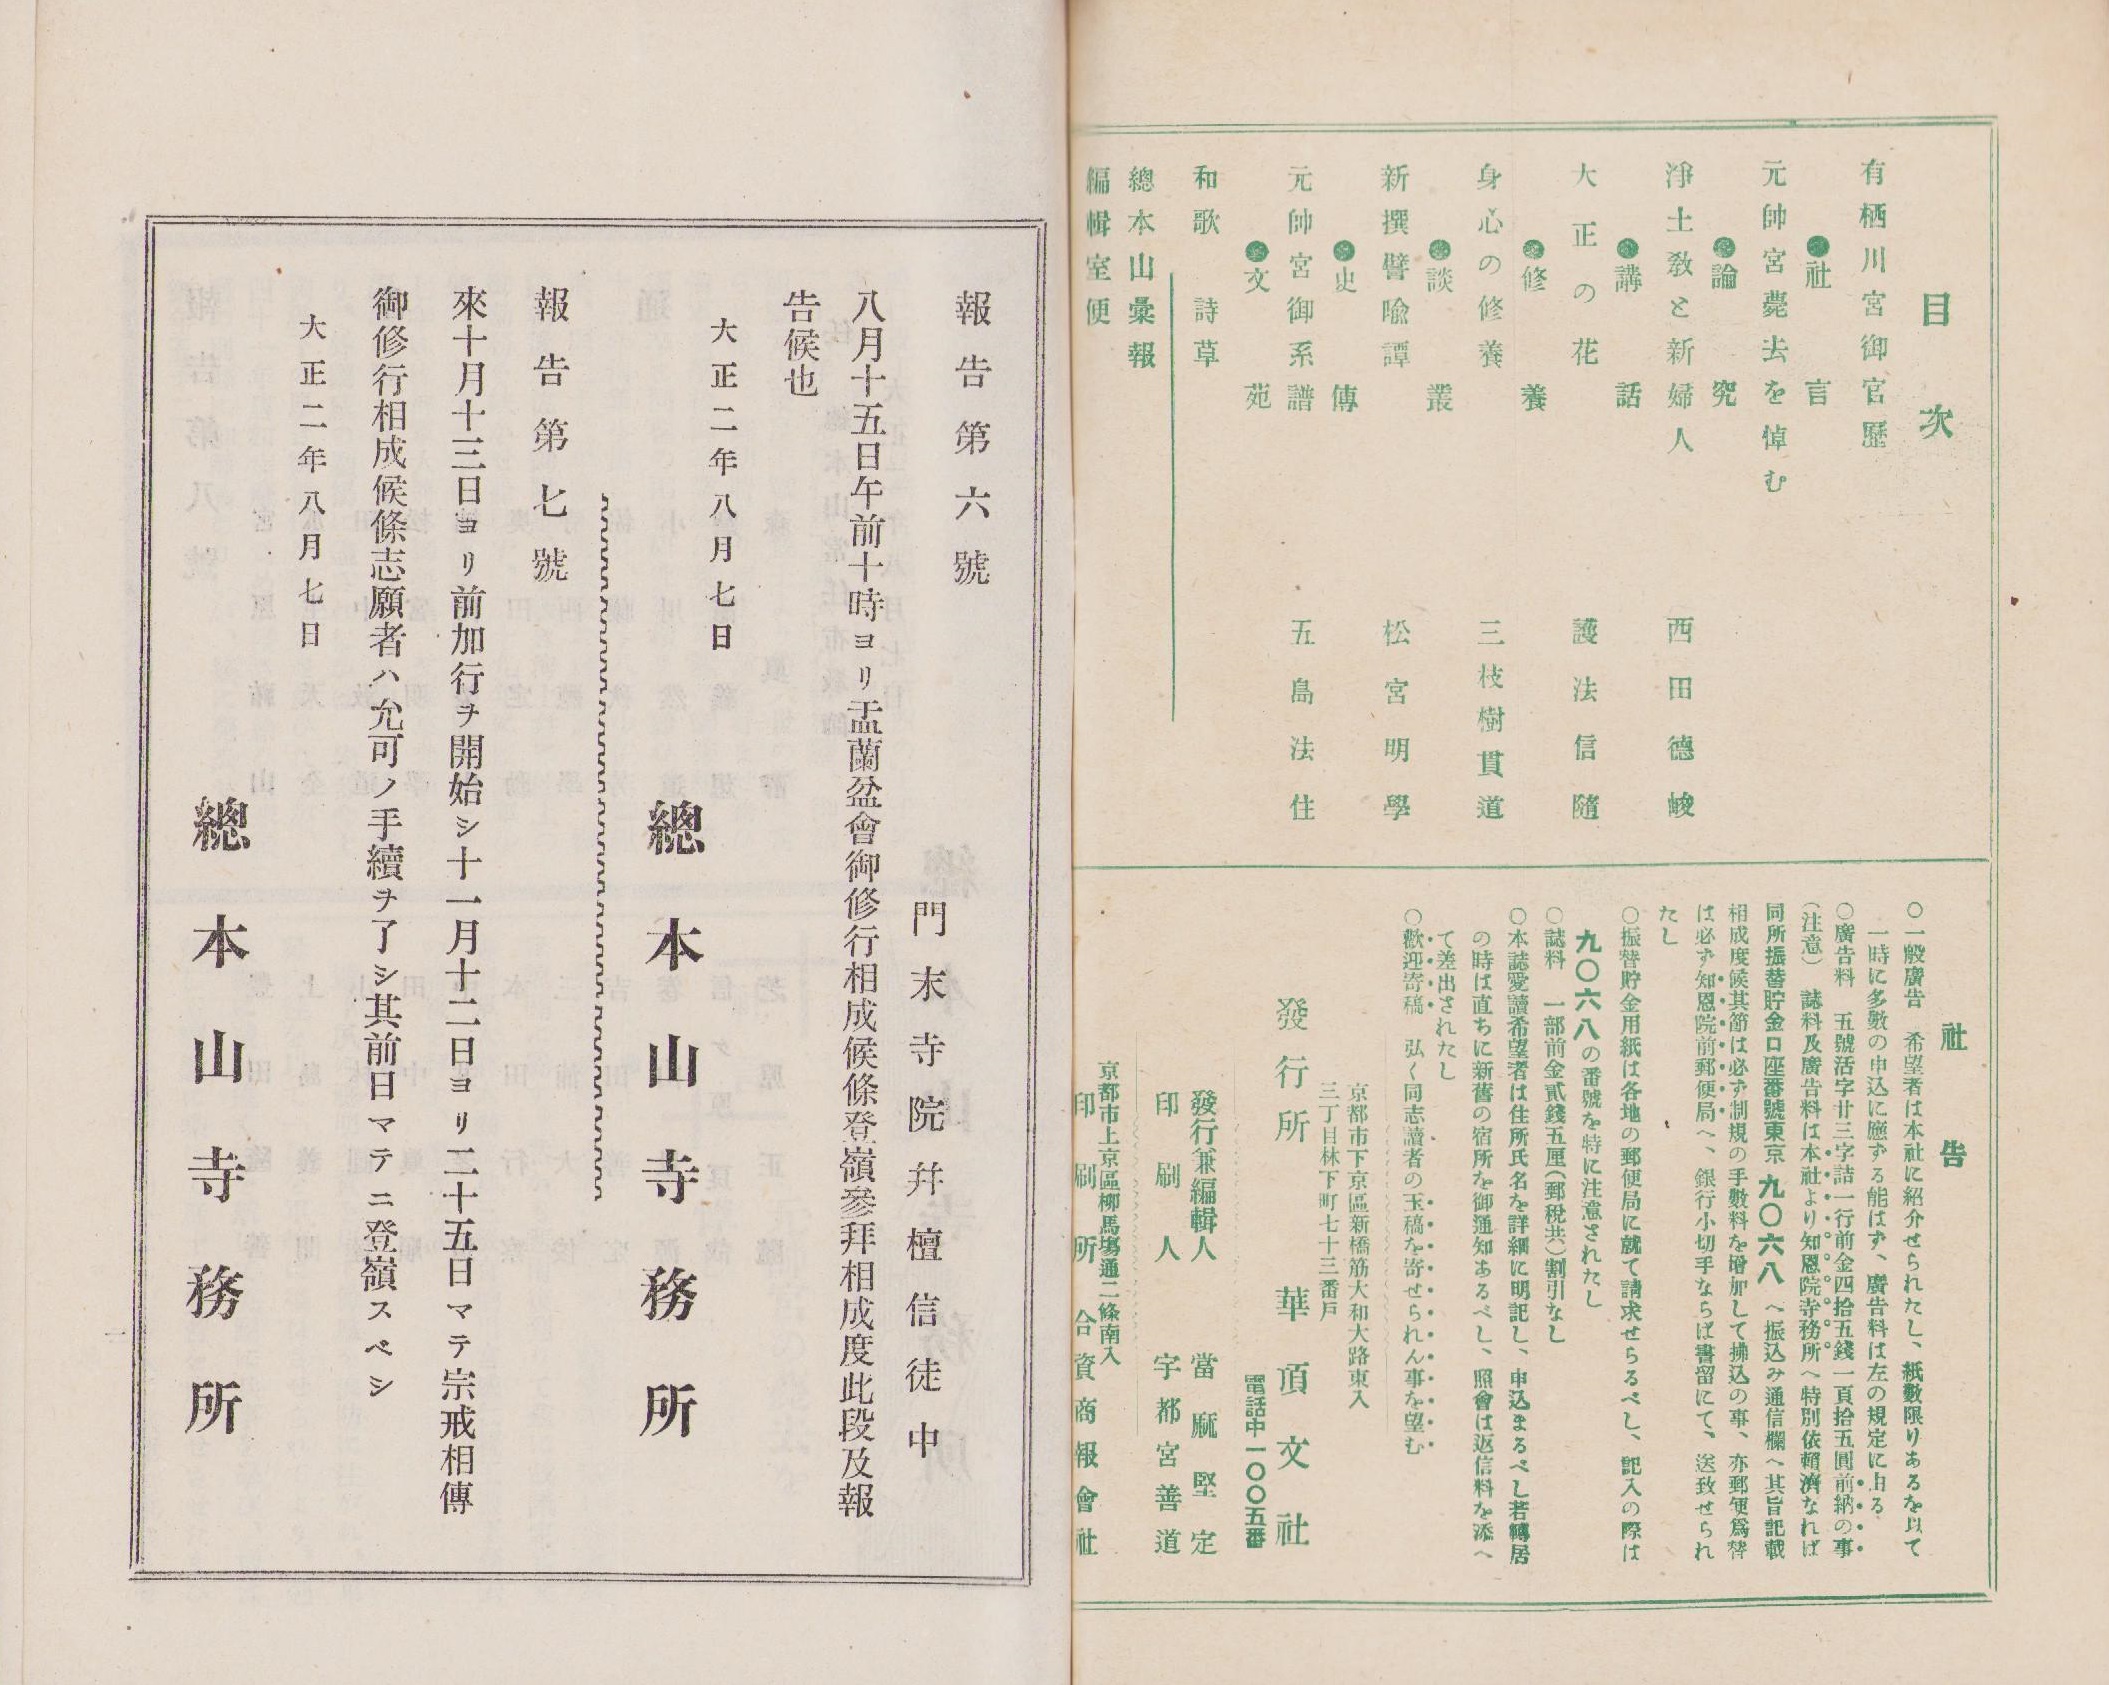 目次
有栖川宮御官歷
●社言
元帥宮薨去を悼む
●論究
淨土敎と新婦人 西田德峻
●講話
大正の花 護法信隨
●修養
身心の修養 三枝樹貫道
●談叢
新撰譬喩譚 松宮明學
●史傳
元帥宮御系譜 五島法住
●文苑
和歌 詩草
總本山彙報
編輯室便
社告
○一般廣告 希望者は本社に紹介せられたし、紙數限りあるを以て
一時に多數の申込に應ずる能はず、廣告料は左の規定に由る
○廣告料 五號活字廿三字詰一行前金四拾五錢一頁拾五圓前納の事
(注意) 誌料及廣告料は本社より知恩院寺務所へ特別依賴濟なれば
同所振替貯金口座番號東京九〇六八へ振込み通信欄へ其旨記載
相成度候其節は必ず制規の手數料を增加して拂込の事、亦郵便爲替
は必ず知恩院前郵便局へ、銀行小切手ならば書留にて、送致せられ
たし
○振替貯金用紙は各地の郵便局に就て請求せらるべし、記入の際は
九〇六八の番號を特に注意されたし
○誌料 一部前金貳錢五厘(郵稅共)割引なし
○本誌愛讀希望者は住所氏名を詳細に明記し、申込まるべし若轉居
の時は直ちに新舊の宿所を御通知あるべし、照會は返信料を添へ
て差出されたし
○歡迎寄稿 弘く同志讀者の玉稿を寄せられん事を望む
京都市下京區新橋筋大和大路東入
三丁目林下町七十三番戶
發行所 華頂文社
電話中一〇〇五番
發行兼編輯人 當麻堅定
印刷人 宇都宮善道
京都市上京區柳馬塲通二條南入
印刷所 合資商報會社
報告第六號
門末寺院幷檀信徒中
八月十五日午前十時ヨリ盂蘭盆會御修行相成候條登嶺參拜相成度此段及報
告候也
大正二年八月七日
總本山寺務所
報告第七號
來十月十三日ヨリ前加行ヲ開始シ十一月十二日ヨリ二十五日マテ宗戒相傳
御修行相成候條志願者ハ允可ノ手續ヲ了シ其前日マテニ登嶺スベシ
大正二年八月七日
總本山寺務所